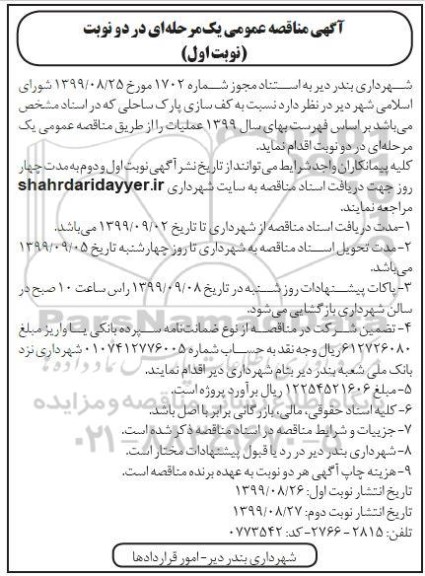 آگهی مناقصه عمومی یک‌مرحله‌ای در دو نوبت
(نوبت اول)
شهرداری بندر دیر به استناد مجوز شماره ۱۷۰۲ مورخ ۱۳۹۹/۰۸/۲۵ شورای
اسلامی شهر دیر در نظر دارد نسبت به کف سازی پارک ساحلی که در اسناد مشخص
می‌باشد بر اساس فهرست بهای سال ۱۳۹۹ عملیات را از طریق مناقصه عمومی یک
مرحله‌ای در دو نوبت اقدام نماید.
کلیه پیمانکاران واجد شرایط می‌توانند از تاریخ نشر آگهی نوبت اول و دوم به مدت چهار
روز جهت دریافت اسناد مناقصه به سایت شهرداری shahrdaridayyer.ir
مراجعه نمایند.
۱-مدت دریافت اسناد مناقصه از شهرداری تا تاریخ ۱۳۹۹/۰۹/۰۲ می‌باشد.
۲-مدت تحویل اسناد مناقصه به شهرداری تا روز چهارشنبه تاریخ ۱۳۹۹/۰۹/۰۵
می‌باشد.
۳-پاکات پیشنهادات روز شنبه در تاریخ ۱۳۹۹/۰۹/۰۸ راس ساعت ۱۰ صبح در
سالن شهرداری بازگشایی می‌شود.
۴-تضمین شرکت در مناقصه از نوع ضمانت‌نامه سپرده بانکی یا واریز مبلغ
۶۱۲۷۲۶۰۸۰ ریال وجه نقد به حساب شماره ۰۱۰۷۴۱۲۷۷۶۰۰۵ شهرداری نزد
بانک ملی شعبه بندر دیر بنام شهرداری دیر اقدام نمایند.
۵-مبلغ ۱۲۲۵۴۵۲۱۶۰۶ ریال برآورد پروژه است.
۶-کلیه اسناد حقوقی، مالی، بازرگانی برابر با اصل باشد.
۷-جزییات و شرایط مناقصه در اسناد مناقصه ذکر شده است.
۸-شهرداری بندر دیر در رد یا قبول پیشنهادات مختار است.
۹-هزینه چاپ آگهی هر دو نوبت به عهده برنده مناقصه است.
تاریخ انتشار نوبت اول: ۱۳۹۹/۰۸/۲۶
تاریخ انتشار نوبت دوم: ۱۳۹۹/۰۸/۲۷
تلفن: ۲۸۱۵-۲۷۶۶- کد: ۰۷۷۳۵۴۲
شهرداری بندر دیر-امور قراردادها
ParsNamadData
پایگاه اطلاع رسانی مناقصه و مزایده
۰۲۱-۸۸۳۴۹۶۷۰-۵